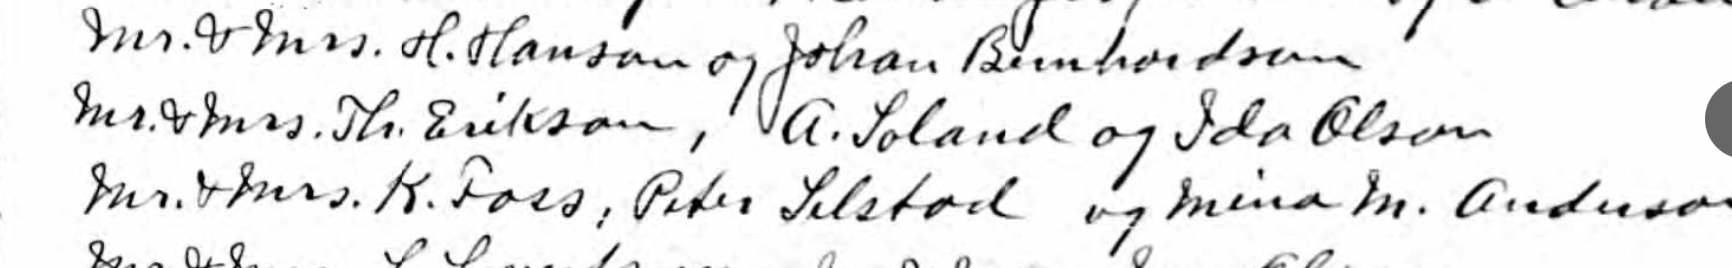 Mr. & Mrs. H. Hanson og Johan Bernhardson
Mr. & Mrs. Th. Erikson, A. Soland og Ida Olson
Mr. & Mrs. K. Foss, Peter Selstad og Mina M. Anderson
Mr. & Mrs.